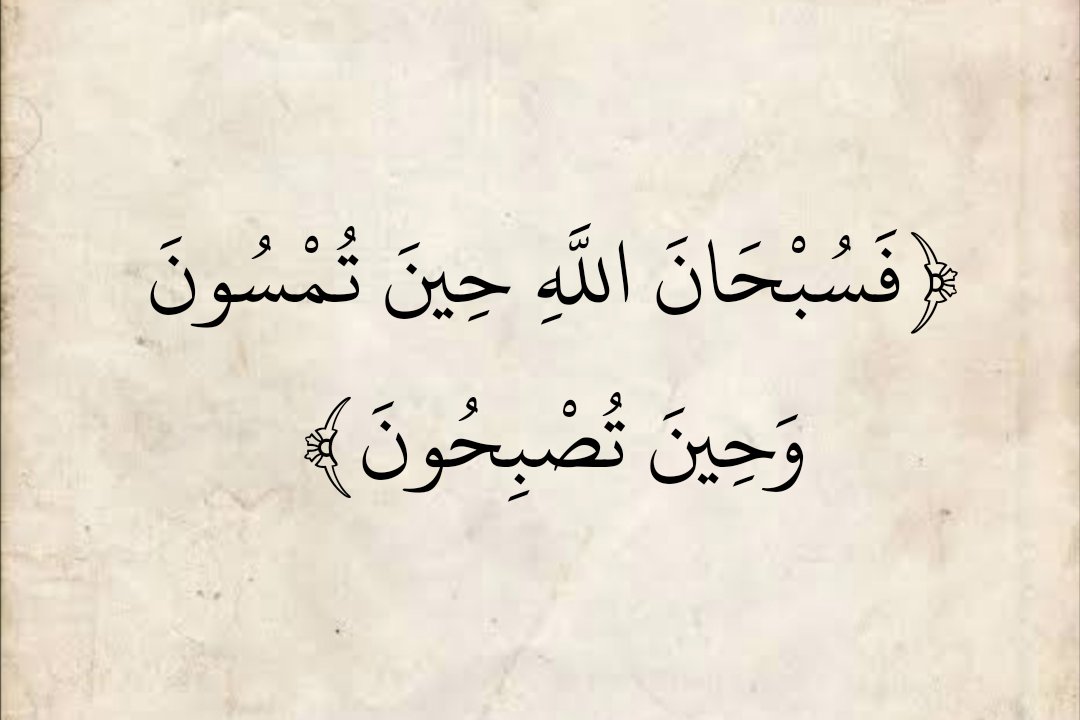 ﴿فَسُبْحَانَ اللَّهِ حِينَ تُمْسُونَ
وَحِينَ تُصْبِحُونَ﴾